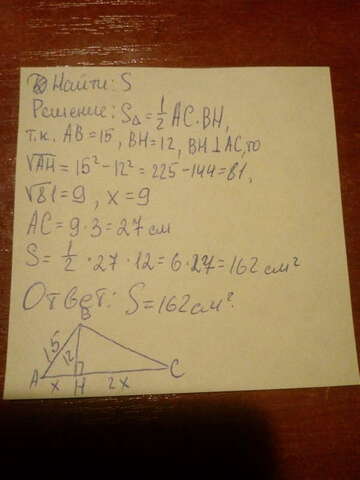 Найти: S
Решение: S△ = 1/2 AC · BH,
т.к. AB = 15, BH = 12, BH ⊥ AC, то
√AH = 15² - 12² = 225 - 144 = 81,
√81 = 9, x = 9
AC = 9 · 3 = 27 см
S = 1/2 · 27 · 12 = 6 · 27 = 162 см²
Ответ: S = 162 см².
B
15 12
A x H 2x C